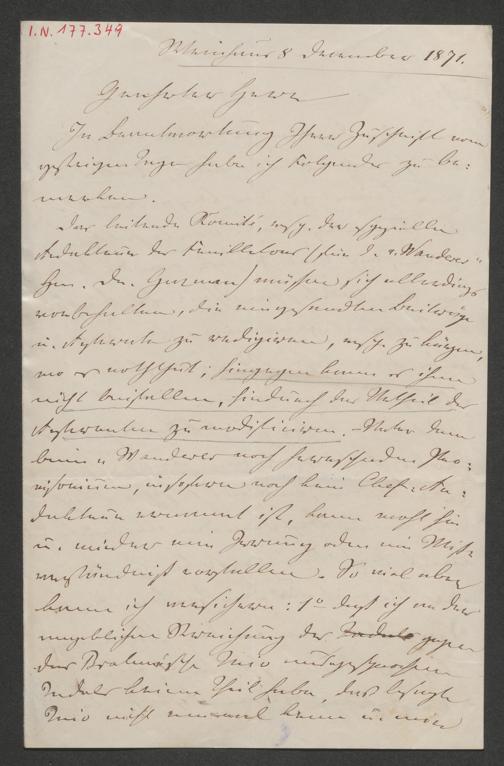 I.N. 177.349
8 December 1871.
Geehrter Herr
In Beantwortung Ihrer Zuschrift vom
gestrigen Tage habe ich Folgendes zu be-
merken.
Das leitende Komité, resp. der spezielle
Redakteur des Feuilletons (für d. "Wanderer"
Hr. Dr. ) müssen sich allerdings
vorbehalten, die eingesandten Beiträge
u. Referate zu redigiren, resp. zu kürzen,
wo es noththut; hingegen kann es ihm
nicht beifallen, hindurch das Urtheil des
Referenten zu modificiren. Unter dem
beim "Wanderer noch herrschenden Pro-
visorium, insofern noch kein Chef-Re-
dakteur ernannt ist, kann wohl hin
u. wieder eine Irrung oder ein Miß-
verständniß vorfallen. So viel aber
kann ich versichern: 1° daß ich an der
angeblichen Streichung des Tadels gegen
das Trio ausgesprochenen
Tadels keinen Theil habe, das besagte
Trio nicht einmal kenne u. mir